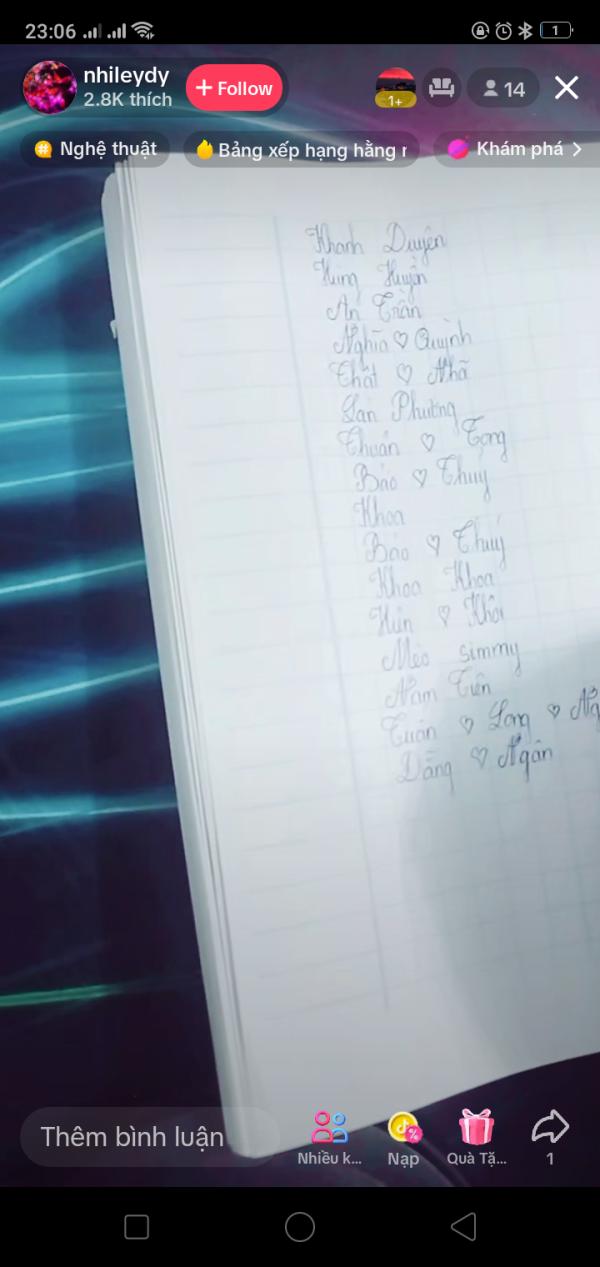 23:06
1
nhileydy
2.8K thích
+ Follow
1+
14
# Nghệ thuật
Bảng xếp hạng hằng n
Khám phá
Khanh Duyên
Hùng Huyền
An Trân
Nghĩa ♡ Quỳnh
Chất ♡ Nhã
Lan Phương
Thuán ♡ Trọng
Bảo ♡ Thuý
Khoa
Bảo ♡ Thuý
Khoa Khoa
Hủn ♡ Khôi
Mèo simmy
Nam Tiên
Tuán ♡ Long ♡
Dăng ♡ Ngân
Thêm bình luận
Nhiều k...
Nạp
Quà Tặ...
1